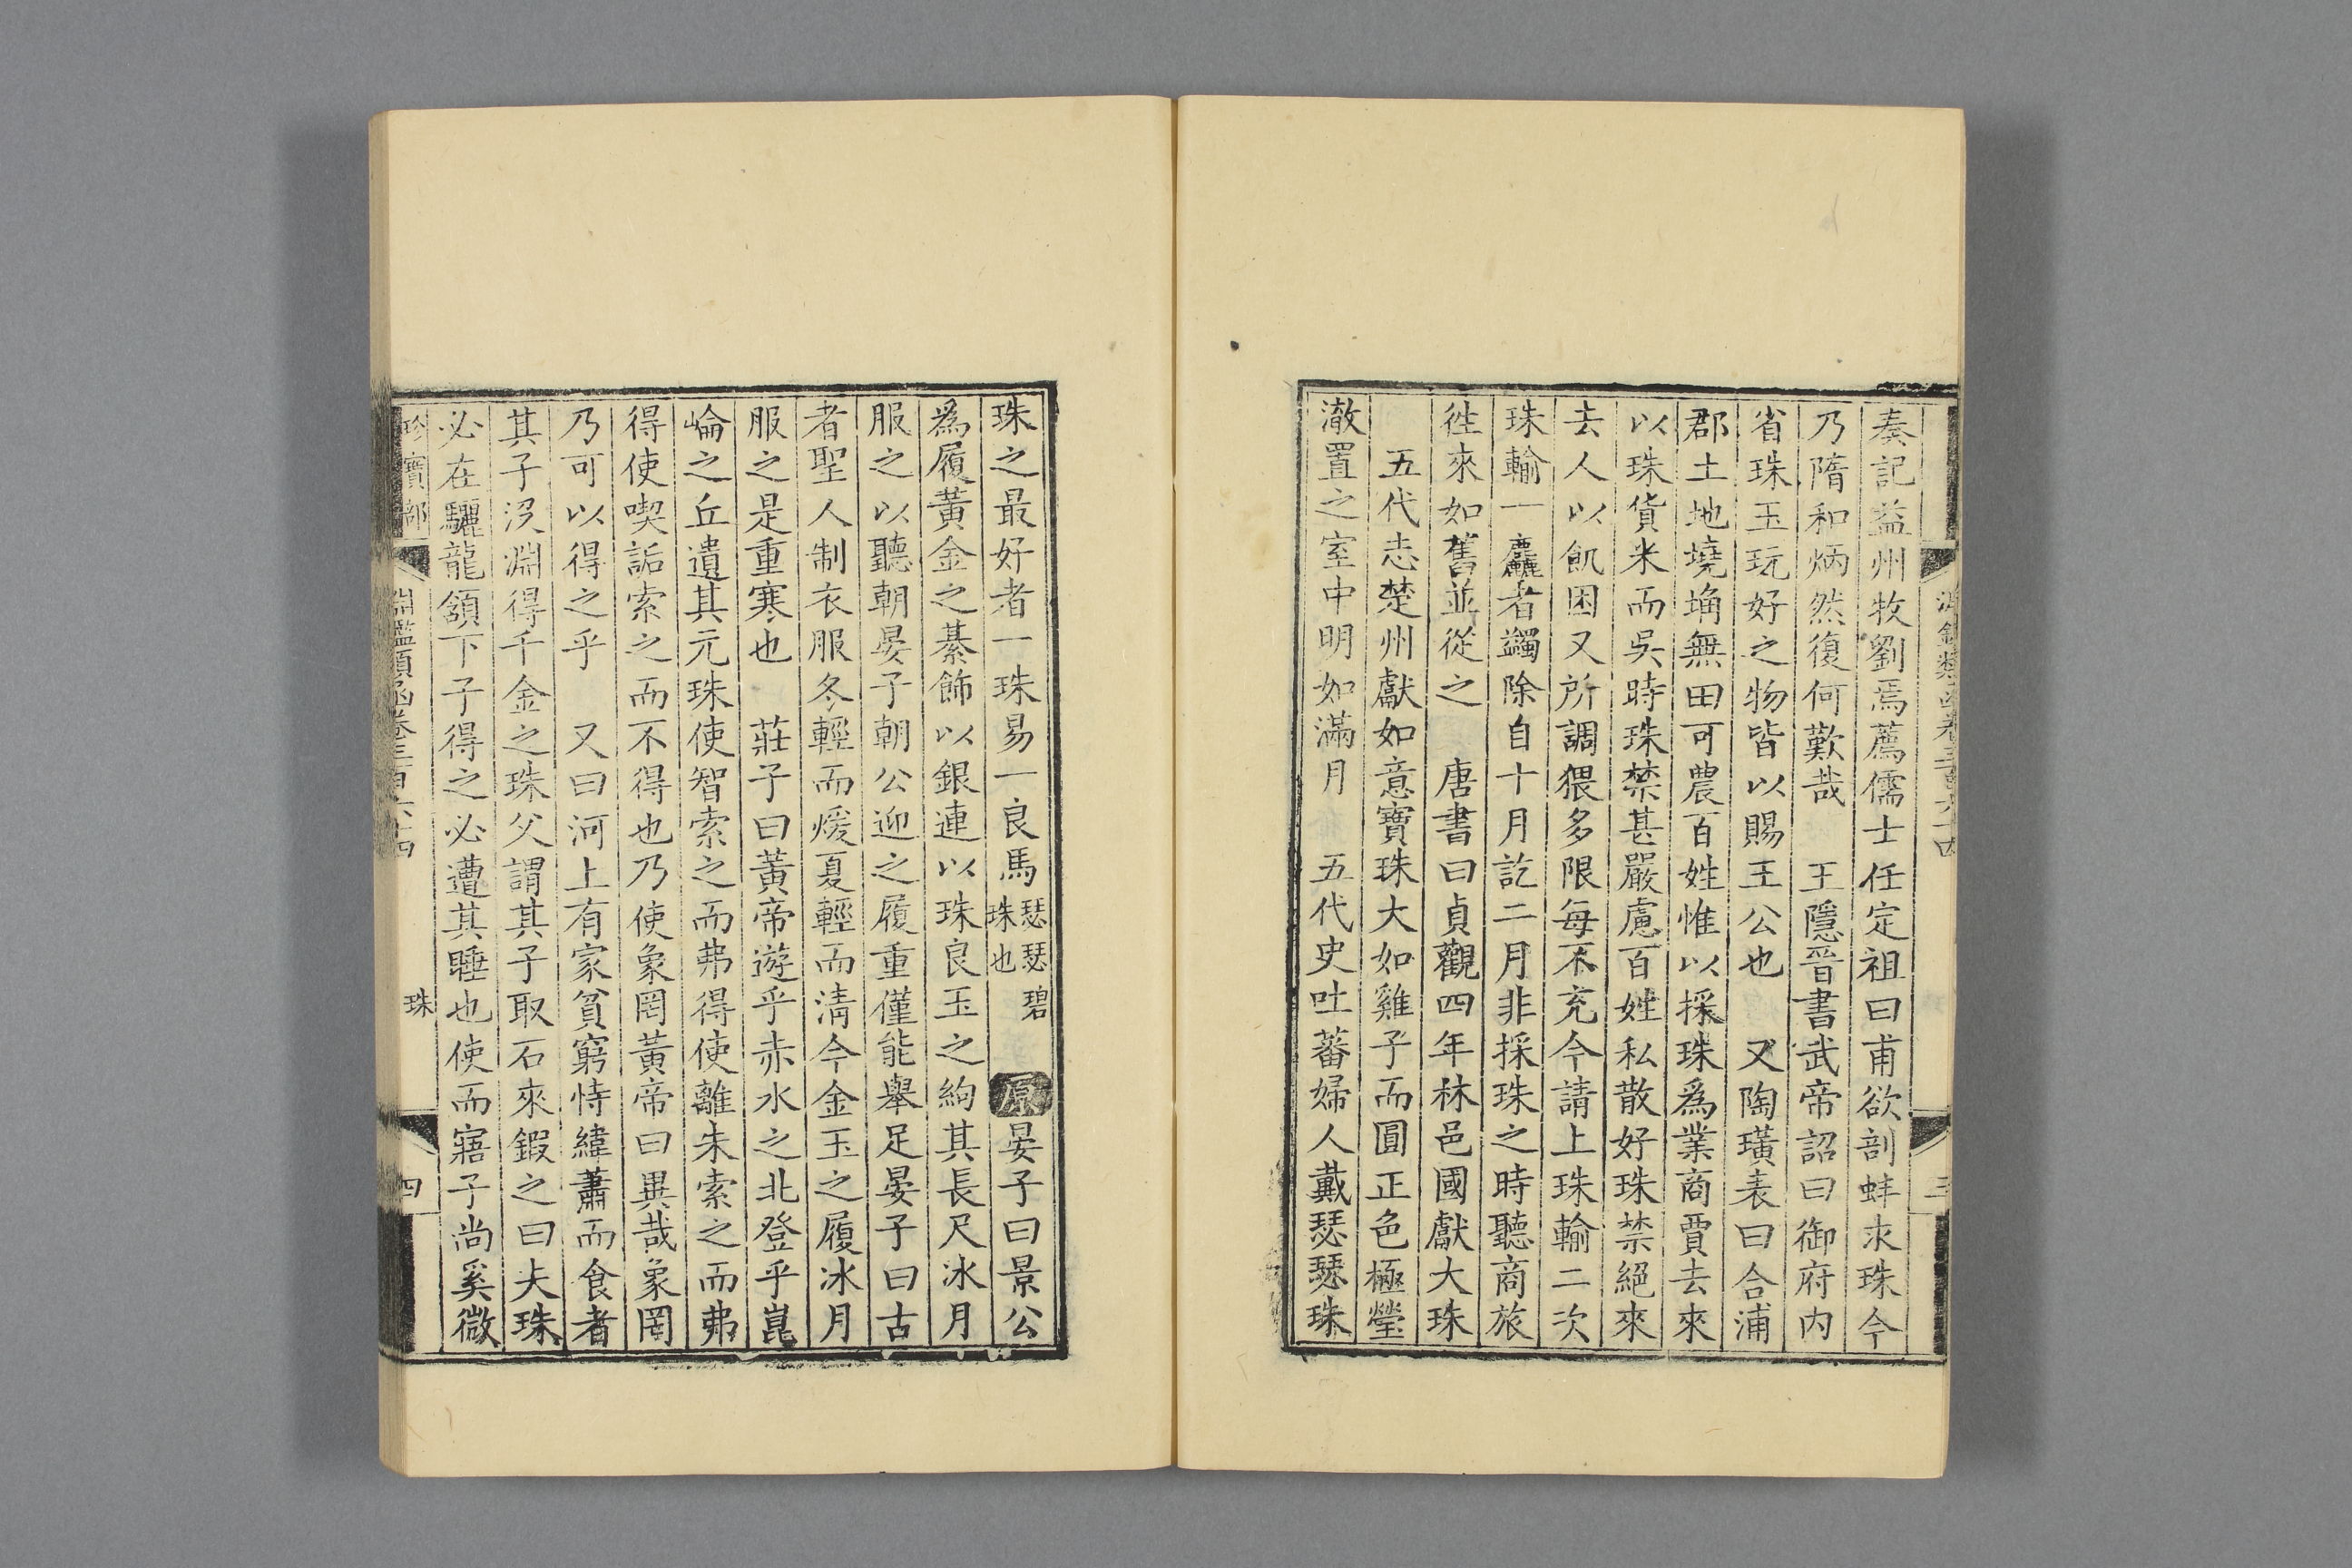 奏記益州牧劉焉薦儒士任定祖曰甫欲剖蚌求珠今
乃隋和炳然復何歎哉 王隱晉書武帝詔曰御府内
省珠玉玩好之物皆以賜王公也 又陶璜表曰合浦
郡土地墝埆無田可農百姓惟以採珠爲業商賈去來
以珠貨米而吳時珠禁甚嚴慮百姓私散好珠禁絕來
去人以飢困又所調猥多限每不充今請上珠輸二次
珠輸一麤者蠲除自十月訖二月非採珠之時聽商旅
徃來如舊並從之 唐書曰貞觀四年林邑國獻大珠
五代志楚州獻如意寶珠大如雞子而圓正色極瑩
澈置之室中明如滿月 五代史吐蕃婦人戴瑟瑟珠
珠之最好者一珠易一良馬瑟瑟碧珠也 原晏子曰景公
爲履黃金之綦飾以銀連以珠良玉之絢其長尺冰月
服之以聽朝晏子朝公迎之履重僅能舉足晏子曰古
者聖人制衣服冬輕而煖夏輕而淸今金玉之履冰月
服之是重寒也 莊子曰黃帝遊乎赤水之北登乎崑
崘之丘遺其元珠使智索之而弗得使離朱索之而弗
得使喫詬索之而不得也乃使象罔黃帝曰異哉象罔
乃可以得之乎 又曰河上有家貧窮恃緯蕭而食者
其子沒淵得千金之珠父謂其子取石來鍜之曰夫珠
必在驪龍頷下子得之必遭其睡也使而寤子尚奚微
珍寶部 淵鑑類函卷三百六十四 珠 四